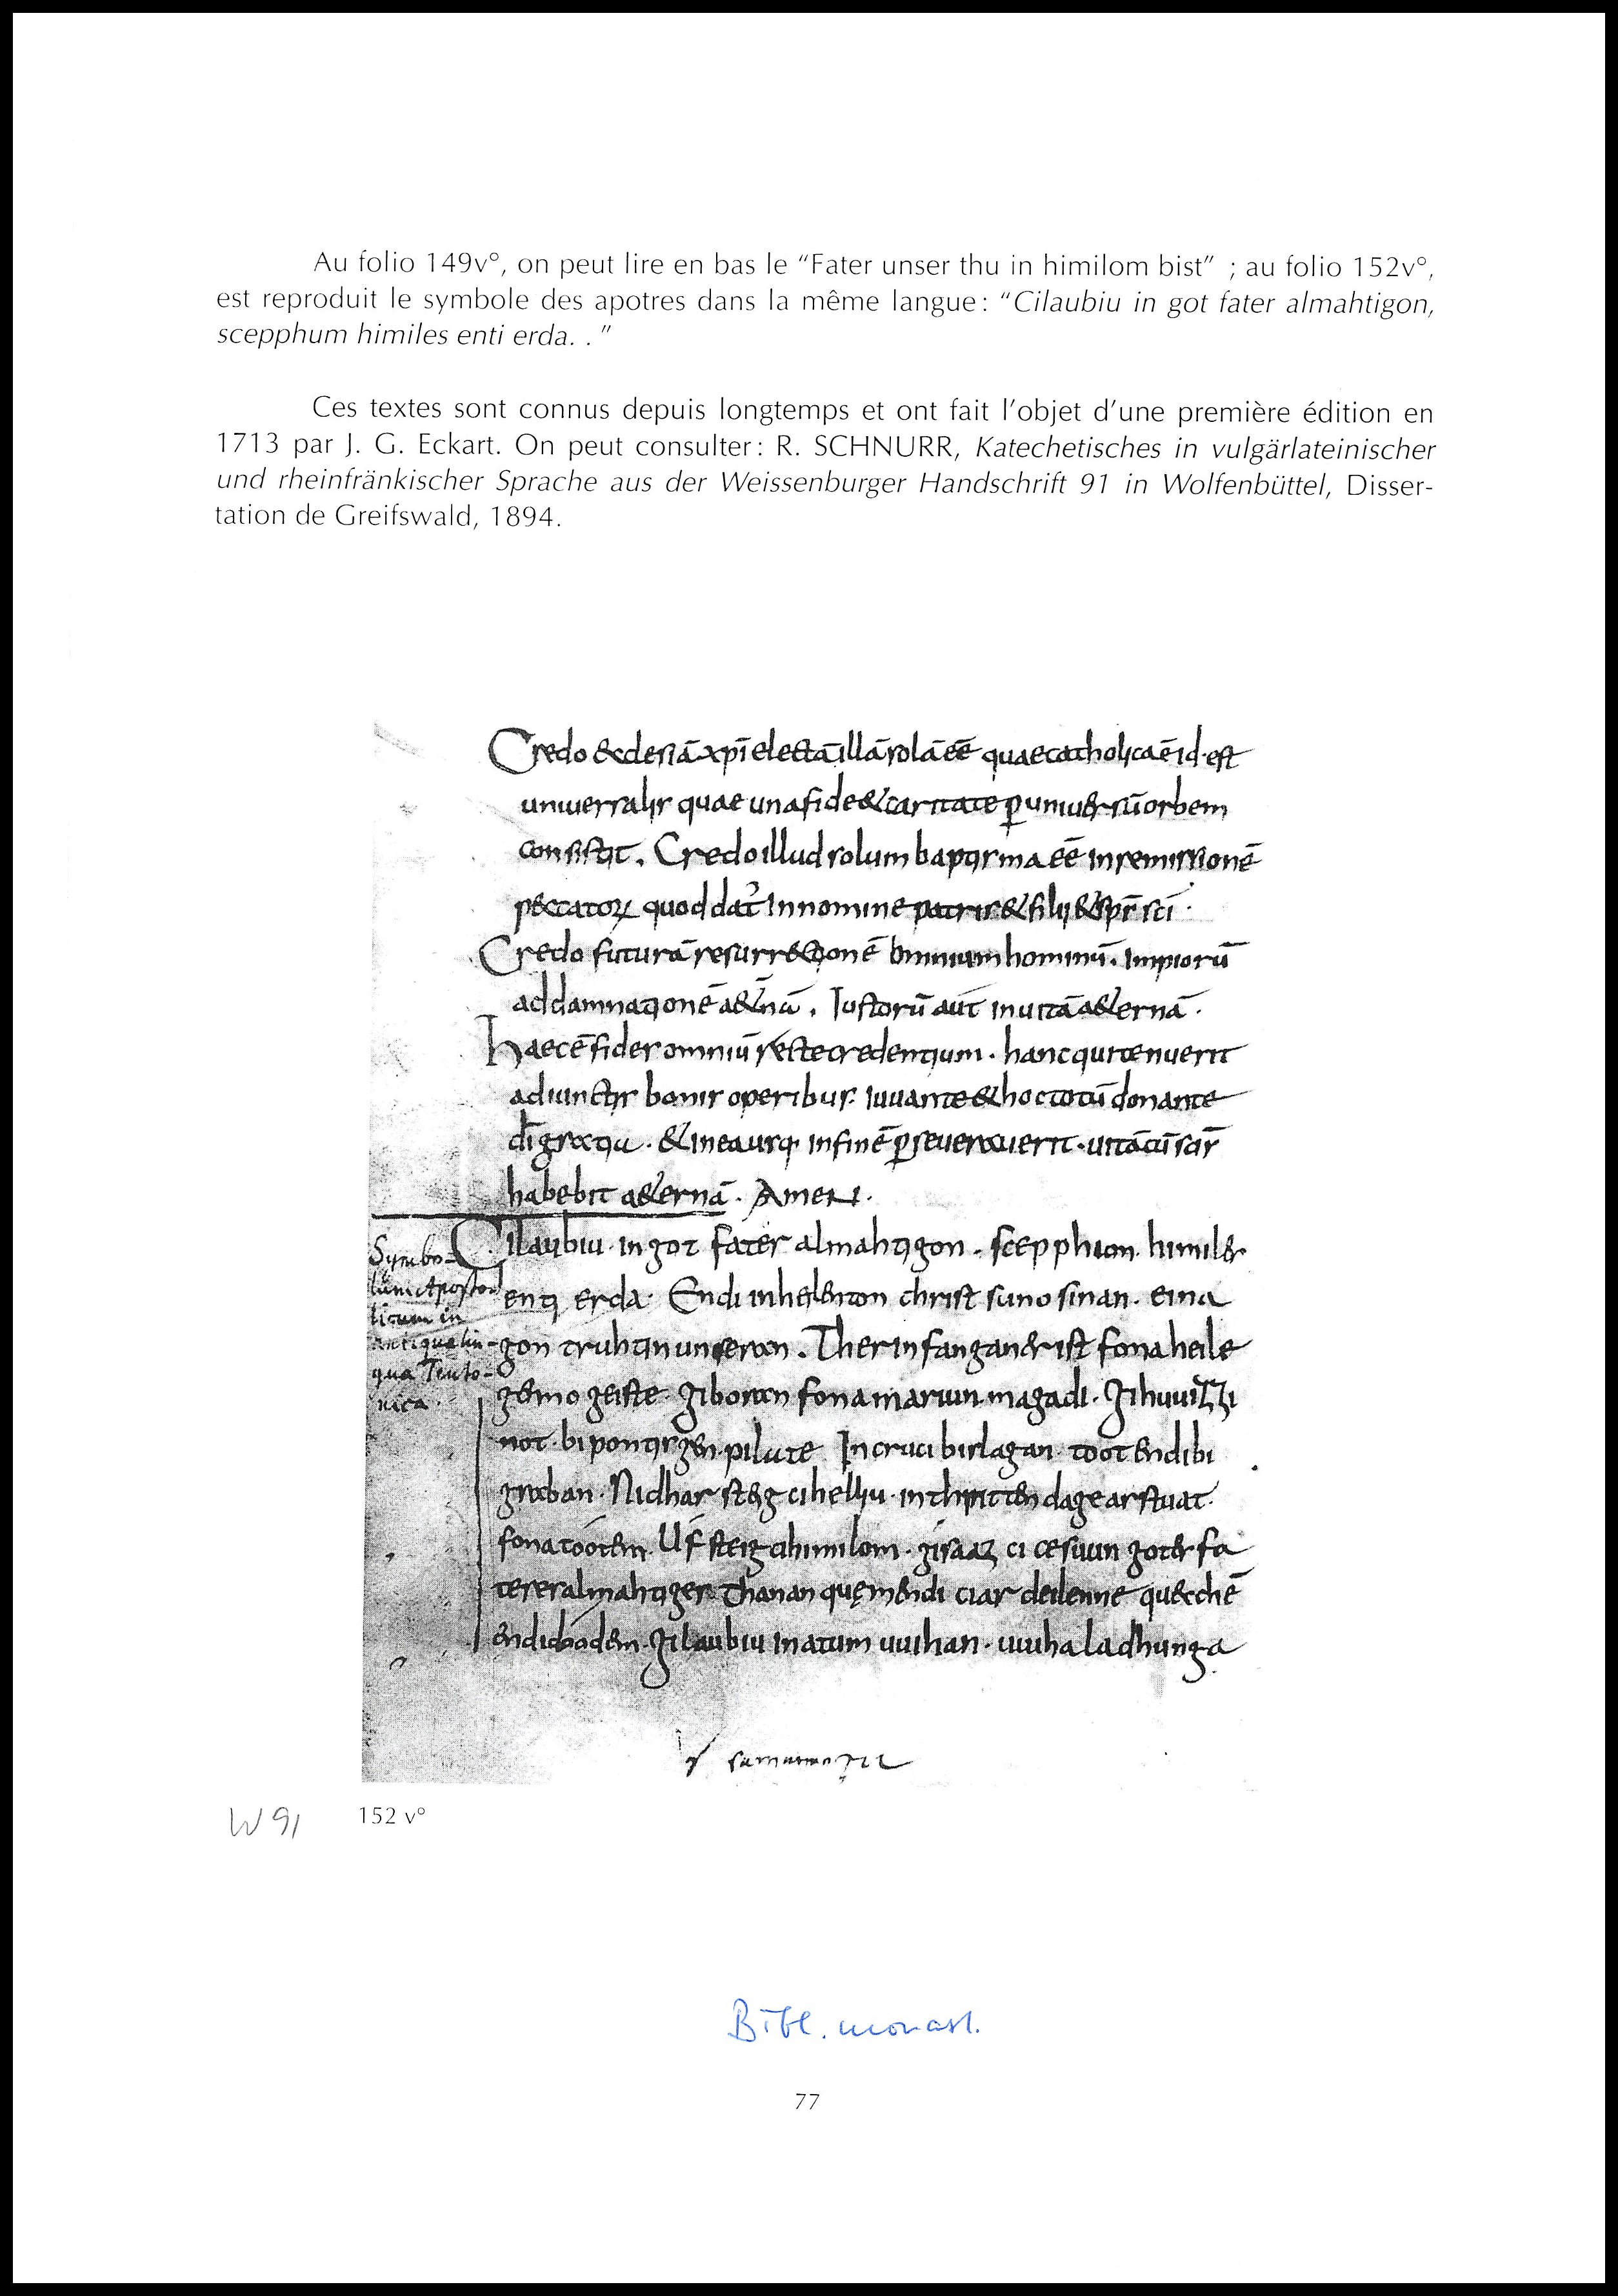 Au folio 149v°, on peut lire en bas le “Fater unser thu in himilom bist” ; au folio 152v°,
est reproduit le symbole des apotres dans la même langue : “Cilaubiu in got fater almahtigon,
scepphum himiles enti erda. . ”
Ces textes sont connus depuis longtemps et ont fait l’objet d’une première édition en
1713 par J. G. Eckart. On peut consulter : R. SCHNURR, Katechetisches in vulgärlateinischer
und rheinfränkischer Sprache aus der Weissenburger Handschrift 91 in Wolfenbüttel, Disser-
tation de Greifswald, 1894.
Credo &cclesiā xpī electā illā solā eē quae catholica ē id·est
universalis quae una fide & caritate ꝑ univ&rsū orbem
consistit. Credo illud solum baptisma eē in remissionē
p&ccatoꝝ quod dat̉ In nomine patris & filii & sp̄s sc̄i ·
Credo futurā resurr&tionē omnium hominū. Impiorū
ad damnationē a&̄nā. Iustorū aūt in vitā a&ernā.
Haec ē fides omniū recte credentium. hanc qui tenuerit
adiunctis bonis operibus. iuvante & hoc totū donante
dī gratia. & in ea usq; in finē ꝑseveraverit. vitā cū sc̄is
habebit a&ernā. Amen.
Symbo-
lum Aposto-
licum in
antiqua lin-
gua Teuto-
nica.
Cilaubiu· in got fater almahtigon. scepphion himil&s
enti erda· Endi in heilenton christ suno sinan. eina
gon truhtin unseran. Ther infangan&r ist fona heile
gemo geiste· giboran fona mariun magadi. gihuuizzi
not· bi pontisgen pilate In cruci bislagan· toot endi bi
graban· Nidhar steig ci helliu· in thritten dage arstuat
fona tóotem Úf steig ci himilom· gisaaz ci cesuun gotes fa
teres almahtiges Thanan quęmendi ci ar deilenne quecchē
endi doodem. gilaubiu in atum uuihan. uuiha ladhunga
W 91
152 v°
Bibl. monast.
77